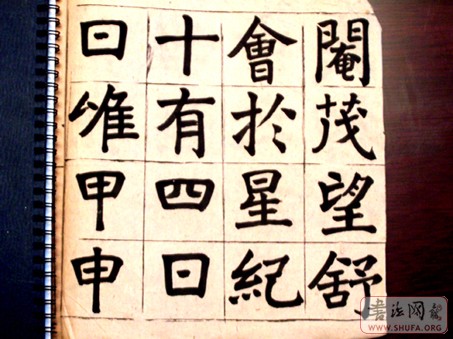 閹茂望舒
會於星紀
十有四日
日惟甲申
書法网
WWW.SHUFA.ORG